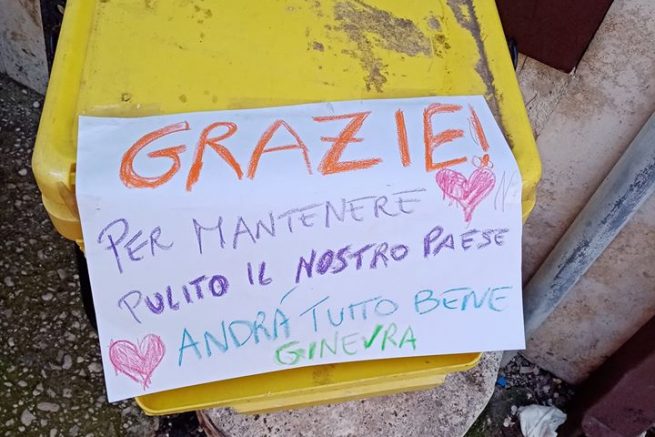 GRAZIE!
PER MANTENERE
PULITO IL NOSTRO PAESE
ANDRÁ TUTTO BENE
GINEVRA